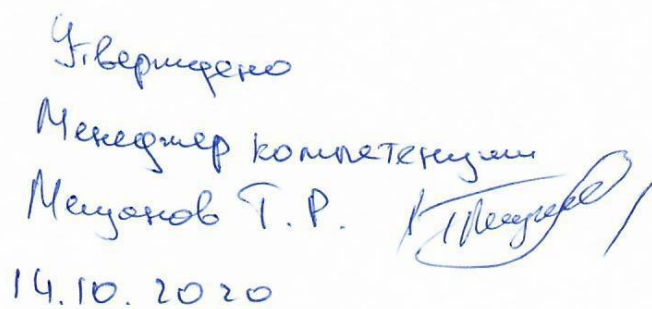 Утверждено
Менеджер компетенции
Мещанов Т.Р.
14.10.2020